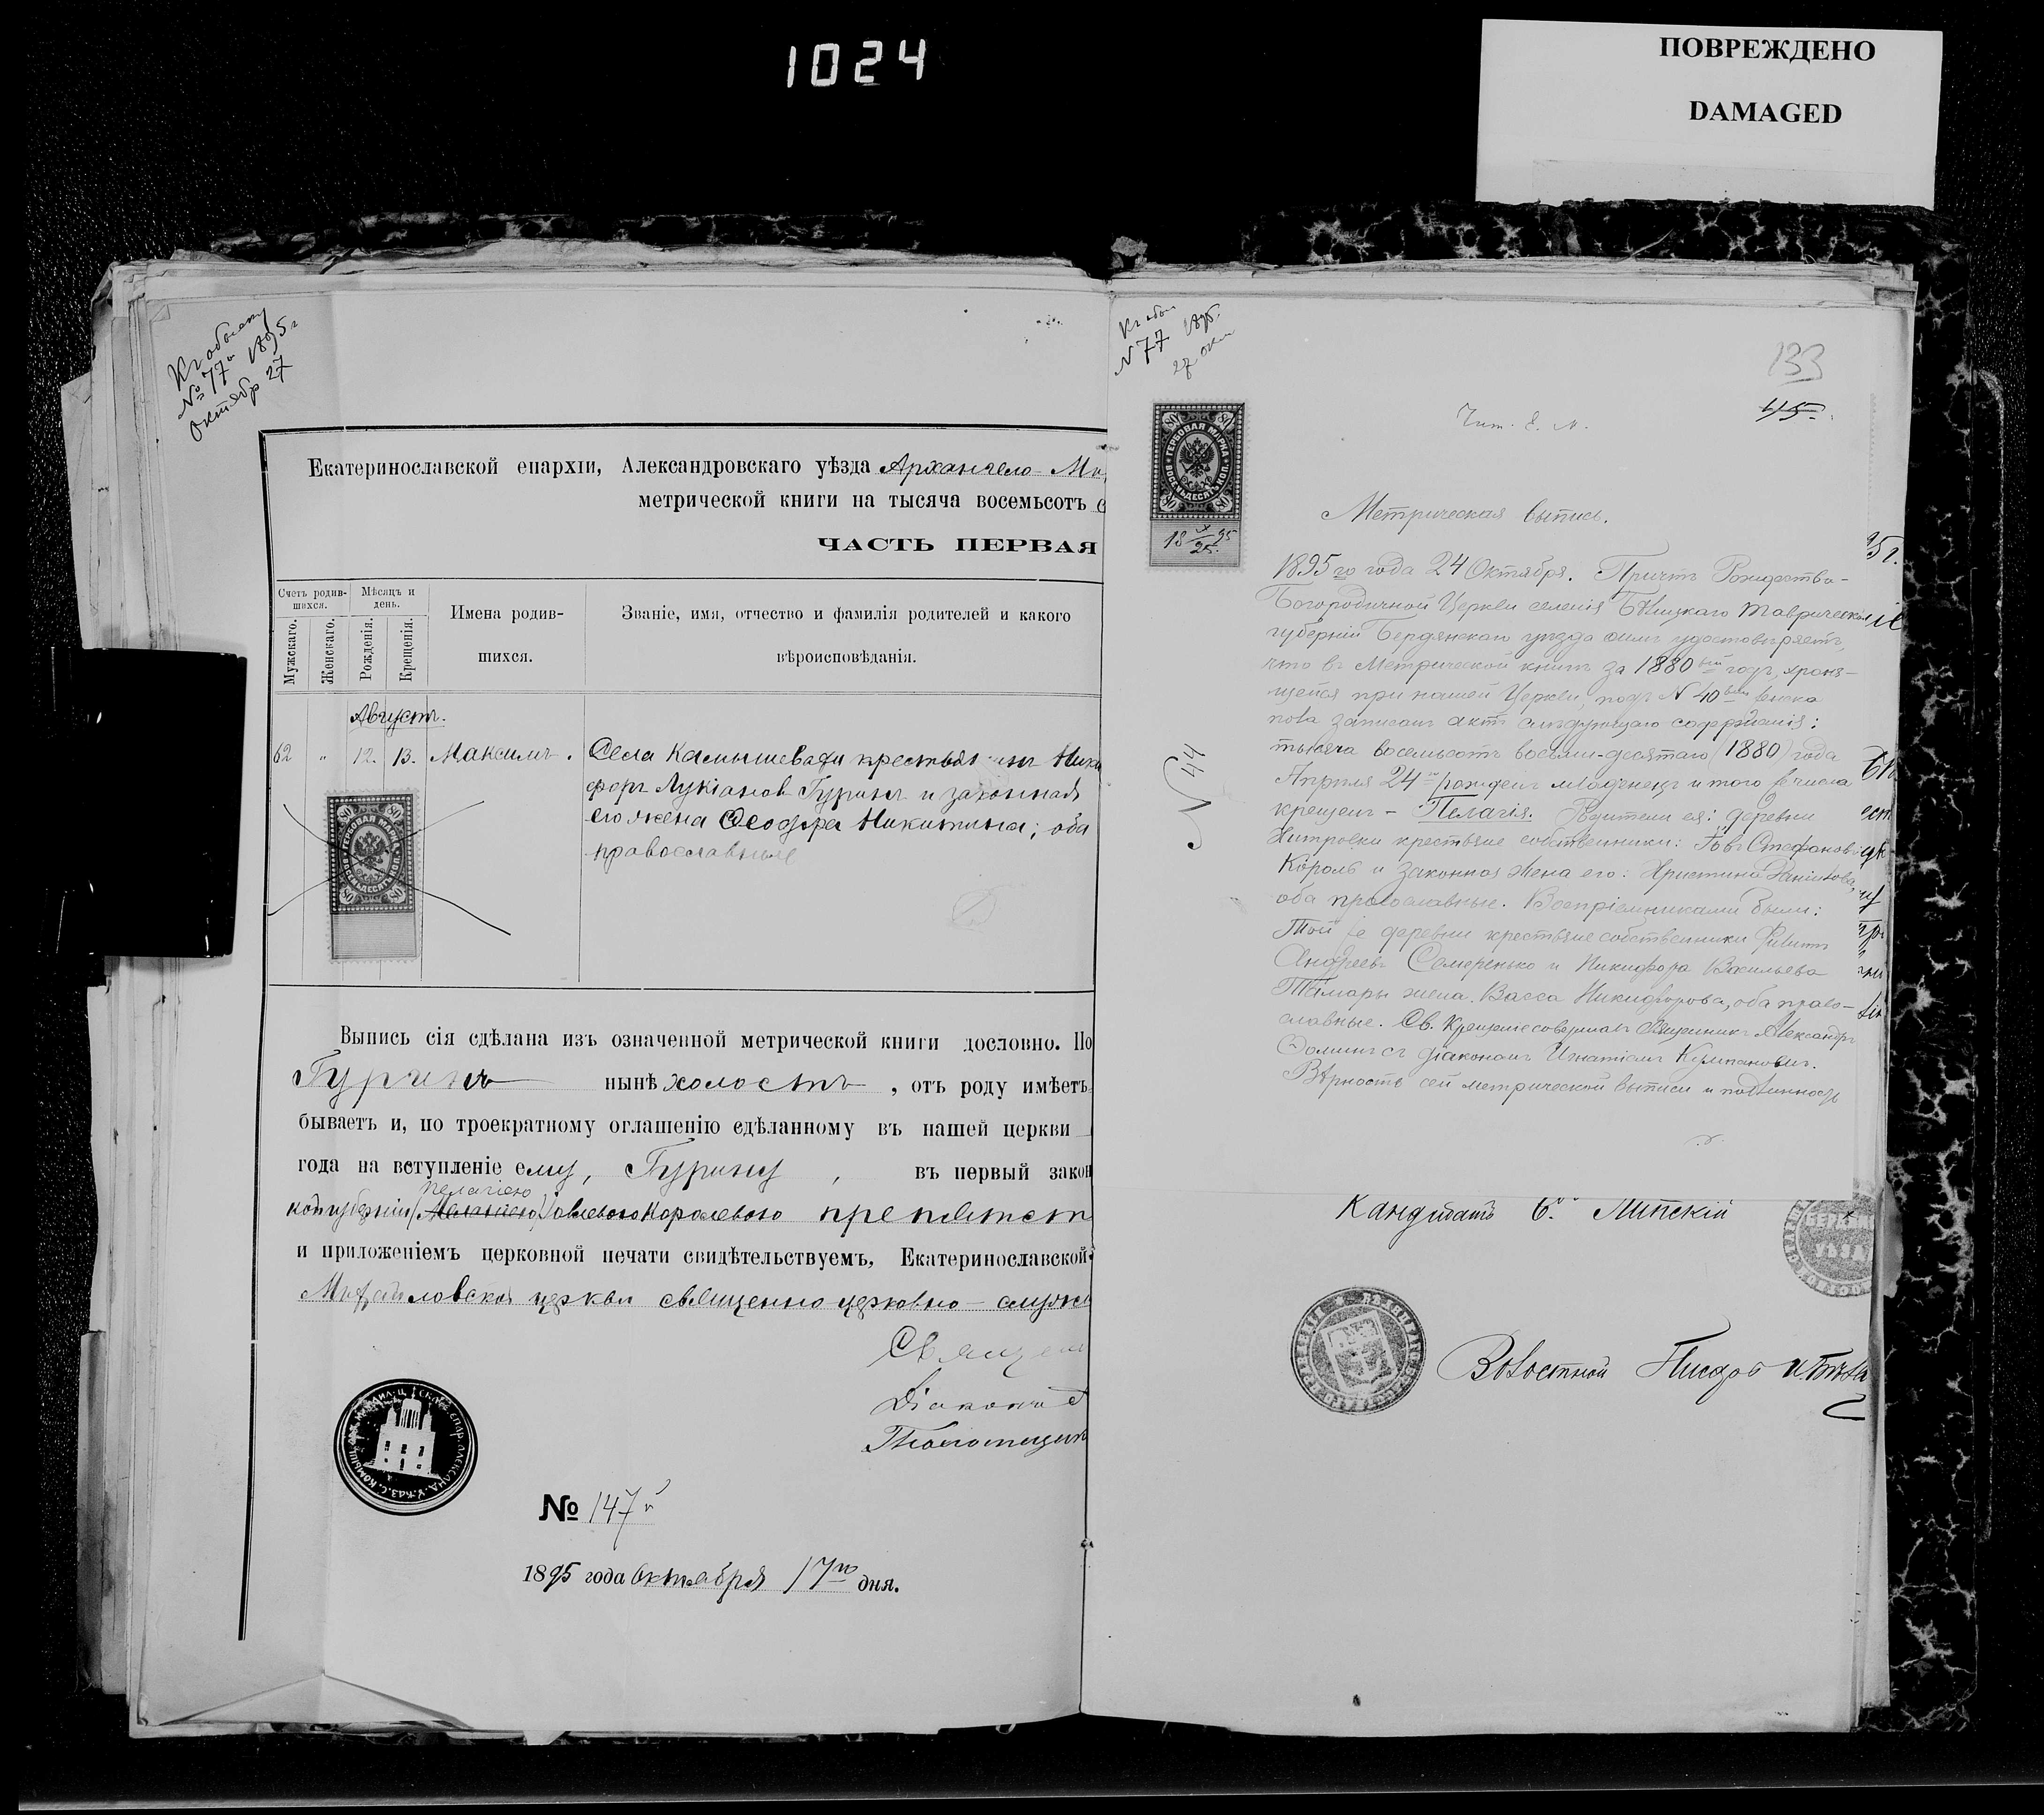 1024
ПОВРЕЖДЕНО
DAMAGED
Къ обыску
№ 77й 1895 г
Октябр 27
Екатеринославской епархіи, Александровскаго уѣзда Архангело-Ми
метрической книги на тысяча восемьсотъ
ЧАСТЬ ПЕРВАЯ
Счетъ родив-
шихся.
Мѣсяцъ и
день.
Мужскаго.
Женскаго.
Рожденія.
Крещенія.
Имена родив-
шихся.
Званіе, имя, отчество и фамилія родителей и какого
вѣроисповѣданія.
Августъ.
62 " 12. 13. Максимъ. Села Камышевахи крестьянинъ Ники
форъ Лукіановъ Гуринъ и законная
его жена Ѳеодора Никитина; оба
православные
ГЕРБОВАЯ МАРКА
ВОСЕМЬДЕСЯТЪ КОП.
80
Выпись сія сдѣлана изъ означенной метрической книги дословно. По
Гуринъ нынѣ холостъ, отъ роду имѣетъ
бываетъ и, по троекратному оглашенію сдѣланному въ нашей церкви
года на вступленіе ему, Гурину, въ первый закон
Пелагіею
кой губерніи Іовлевою Королевою препятст
и приложеніемъ церковной печати свидѣтельствуемъ, Екатеринославской
Михайловской церкви священно церковно-служи
Священ
Діаконъ
Псаломщик
№ 147й
1895 года Октября 17го дня.
Къ обыс
N 77 1895.
27 окт
133
45.
ГЕРБОВАЯ МАРКА
ВОСЕМЬДЕСЯТЪ КОП.
80
18 X/25 95
Чит. Е. N.
Метрическая выпись.
1895го года 24 Октября. Причтъ Рождество-
Богородичной Церкви селенія Бѣлицкаго Таврической
губерніи Бердянскаго уѣзда симъ удостовѣряетъ,
что въ Метрической книгѣ за 1880ый годъ, храня-
щейся при нашей Церкви, подъ N 40 женска
пола записанъ актъ слѣдующаго содержанія:
тысяча восемьсотъ восемь-десятаго (1880) года
Апрѣля 24го рожденъ младенецъ и того числа
крещенъ - Пелагія. Родители ея: деревни
Хитровки крестьяне собственники: Іовъ Стефановъ
Король и законная жена его: Христина Даніилова,
оба православные. Воспріемниками были:
Той же деревни крестьяне собственники Филиппъ
Андреевъ Семеренько и Никифора Васильева
Тамары жена Васса Никифорова, оба право-
славные. Св. Крещеніе совершалъ Священникъ Александръ
Ѳоминъ съ діакономъ Игнатіемъ Кулпановичъ.
Вѣрность сей метрической выписи и подлинность
N 44
Кандидатъ Б. Липскій
Волостной Писарь